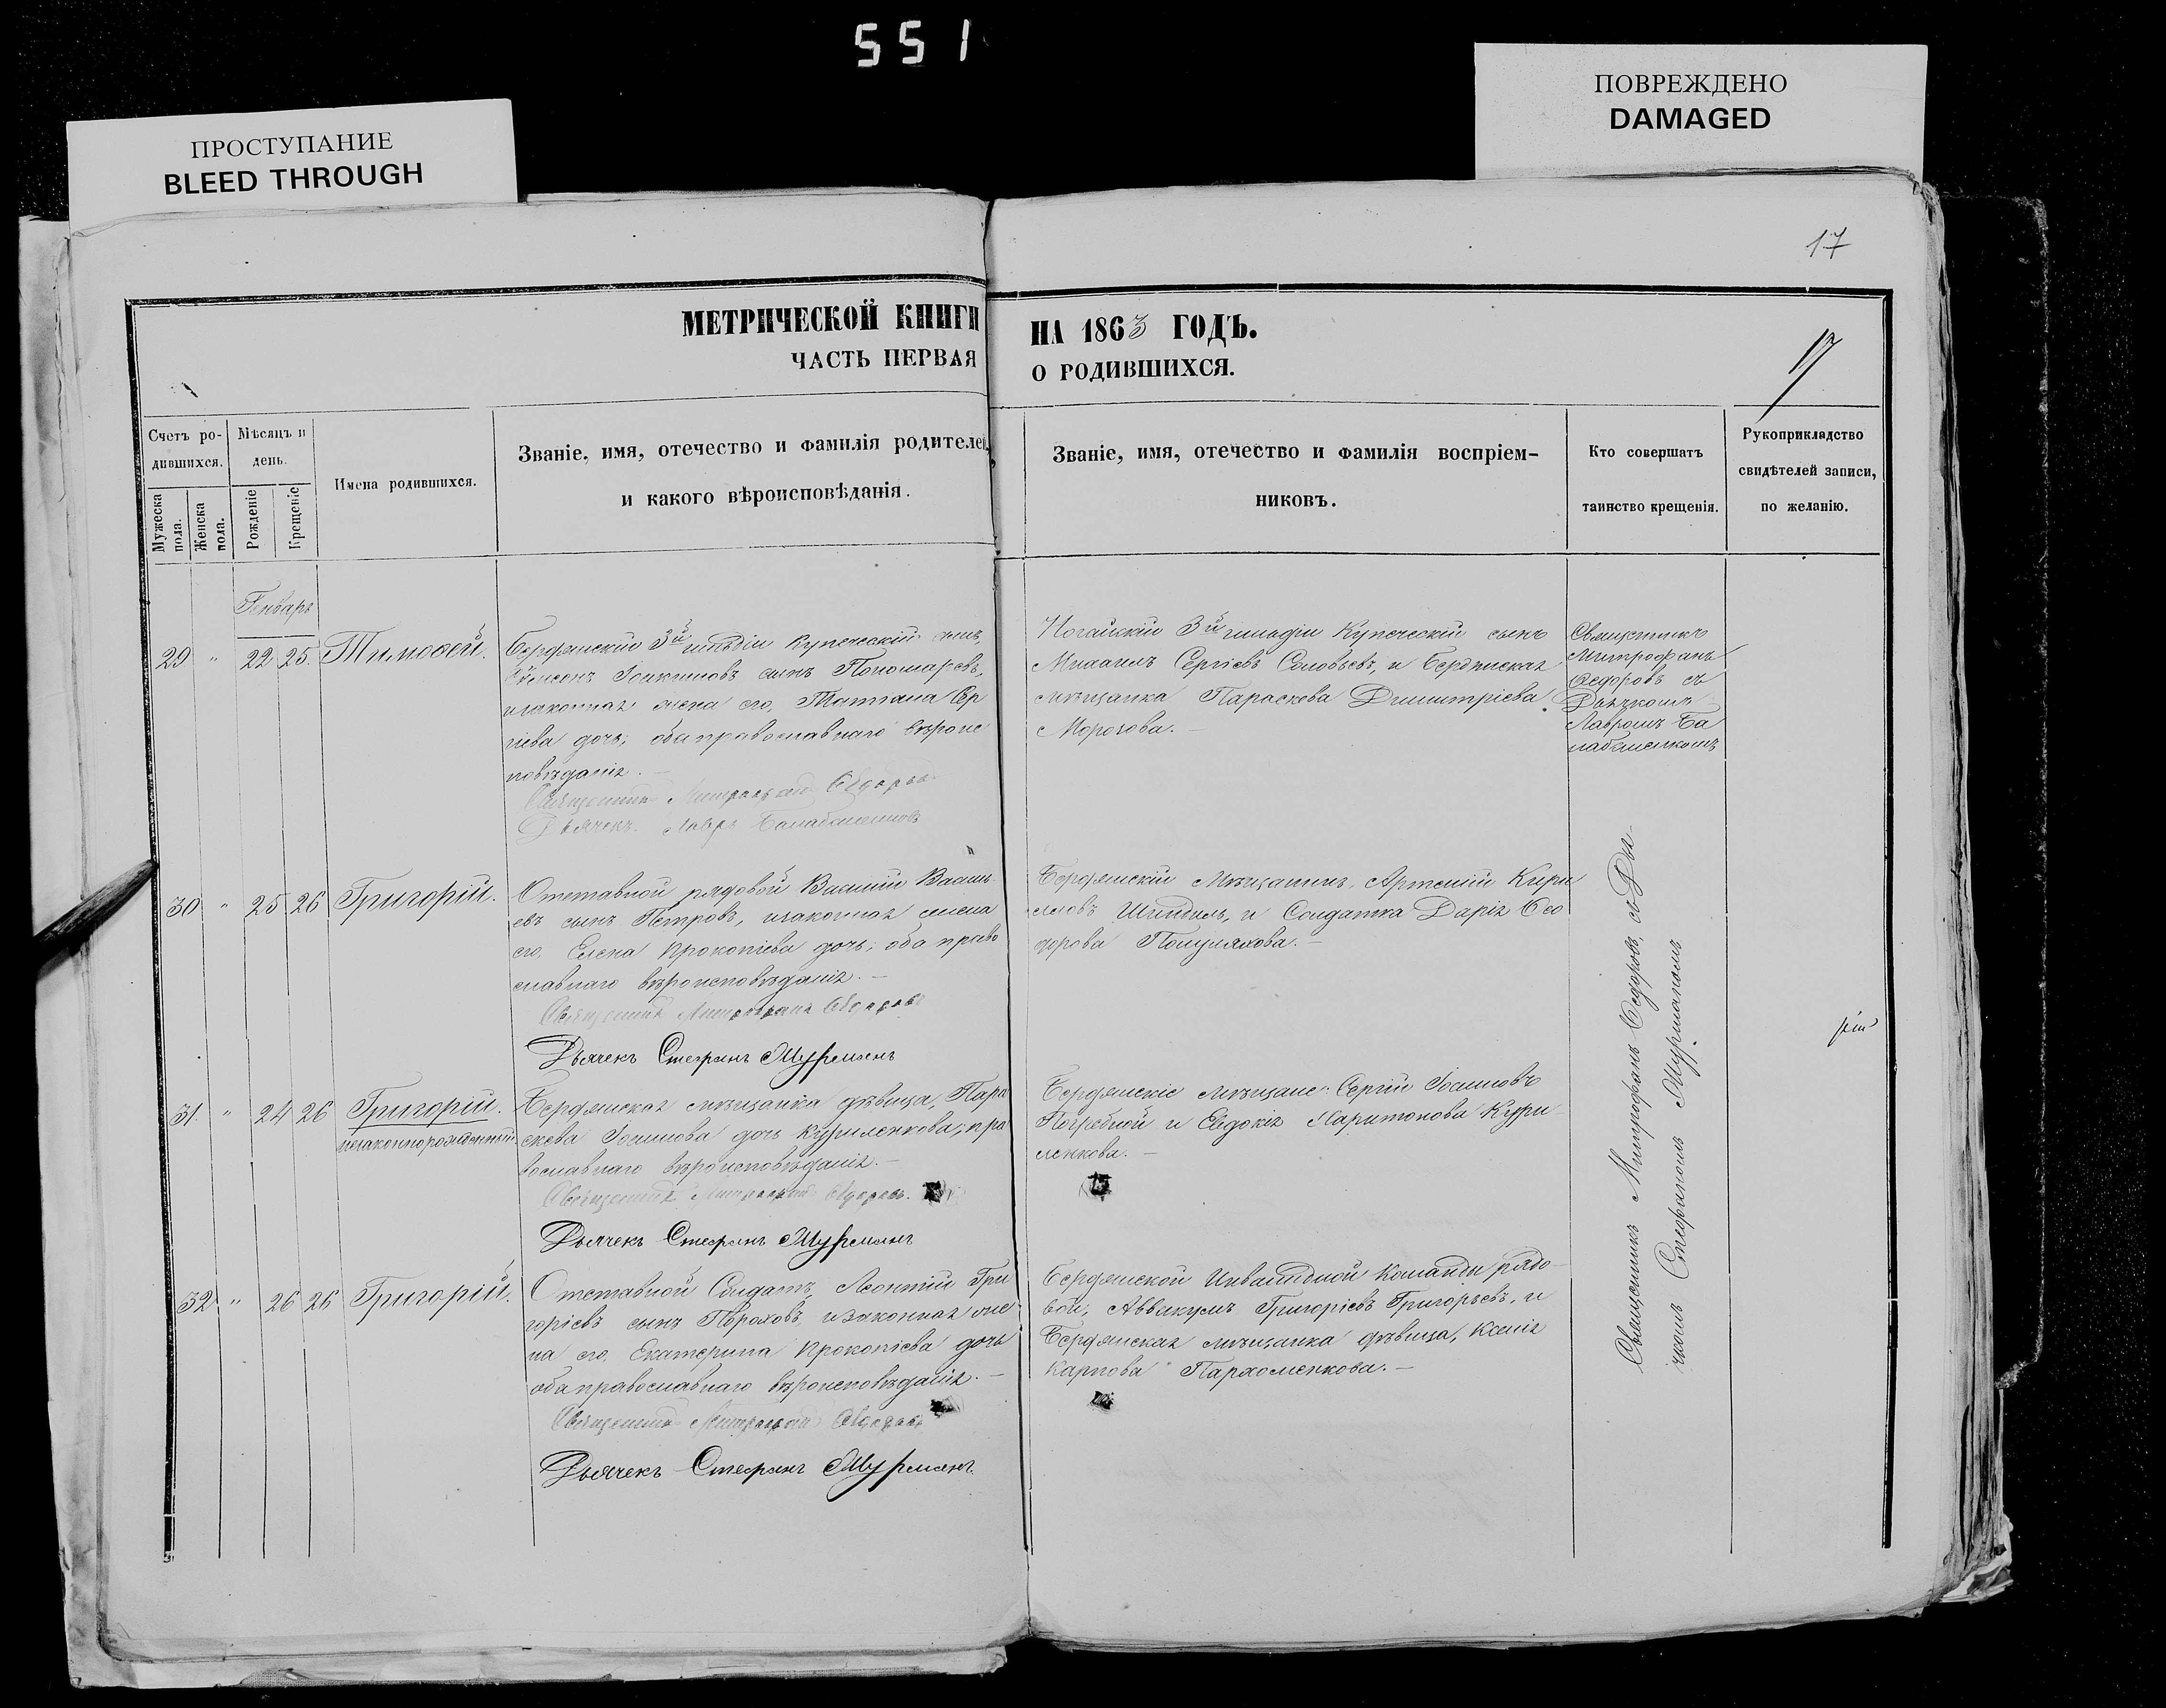 551
ПРОСТУПАНИЕ
BLEED THROUGH
ПОВРЕЖДЕНО
DAMAGED
17
МЕТРИЧЕСКОЙ КНИГИ
НА 1863 ГОДЪ.
ЧАСТЬ ПЕРВАЯ
О РОДИВШИХСЯ.
17
Счетъ ро-
дившихся.
Мужеска
пола.
Женска
пола.
Мѣсяцъ и
день.
Рожденіе
Крещеніе
Имена родившихся.
Званіе, имя, отечество и фамилія родителей,
и какого вѣроисповѣданія.
Званіе, имя, отечество и фамилія воспріем-
никовъ.
Кто совершатъ
таинство крещенія.
Рукоприкладство
свидѣтелей записи,
по желанію.
Генварь
29 " 22 25. Тимоѳей.
Бердянскій 3й гильдіи Купеческій сынъ,
Іоакимовъ сынъ Пономаревъ,
изаконная жена его, Татіана Сер
гіева дочь; оба православнаго вѣроис
повѣданія. —
Священникъ Митрофанъ Ѳедоровъ
Дьячекъ Лавръ
Ногайскій 3й гильдіи Купеческій сынъ
Михаилъ Сергіевъ Соловьевъ, и Бердянская
мѣщанка Параскева Димитріева
Морозова. —
Священникъ
Митрофанъ
Ѳедоровъ съ
Дьячкомъ
Лавромъ Ба
лабаненкомъ
30 " 25 26 Григорій.
Отставной рядовой Василій Василь
евъ сынъ Петровъ, изаконная жена
его, Елена Прокопіева дочь; оба право
славнаго вѣроисповѣданія. —
Священникъ Митрофанъ Ѳедоровъ
Дьячекъ Стефанъ Мурманъ
Бердянскій Мѣщанинъ, Артемій Кири
лловъ и Солдатка Дарія Ѳео
дорова Полуляхова. —
31. " 24 26 Григорій.
незаконнорожденный
Бердянская мѣщанка дѣвица, Пара
скева Іосифова дочь Куриленкова; пра
вославнаго вѣроисповѣданія. —
Священникъ Митрофанъ Ѳедоровъ.
Дьячекъ Стефанъ Мурманъ
Бердянскіе мѣщане: Сергій Іосифовъ
Погребной и Евдокія Харитонова Кури
ленкова. —
32 " 26 26 Григорій.
Отставной Солдатъ, Леонтій Гри
горіевъ сынъ Пороховъ, изаконная же
на его, Екатерина Прокопіева дочь
оба православнаго вѣроисповѣданія. —
Священникъ Митрофанъ Ѳедоровъ
Дьячекъ Стефанъ Мурманъ.
Бердянской Инвалидной Команды рядо
вой, Аввакумъ Григоріевъ Григорьевъ, и
Бердянская мѣщанка дѣвица, Ксенія
Карпова Пархоменкова. —
Священникъ Митрофанъ Ѳедоровъ, съ Дья-
чкомъ Стефаномъ Мурманомъ